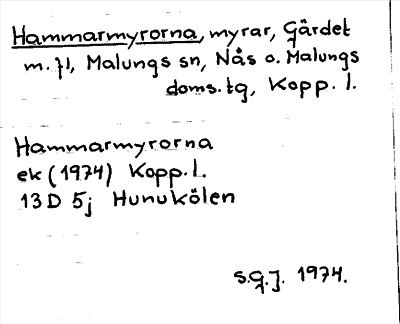 Hammarmyrorna, myrar, Gärdet
m. fl, Malungs sn, Nås o. Malungs
doms. tg, Kopp. l.
Hammarmyrorna
ek (1974) Kopp. L.
13 D 5j Hunukölen
S.G.J. 1974.